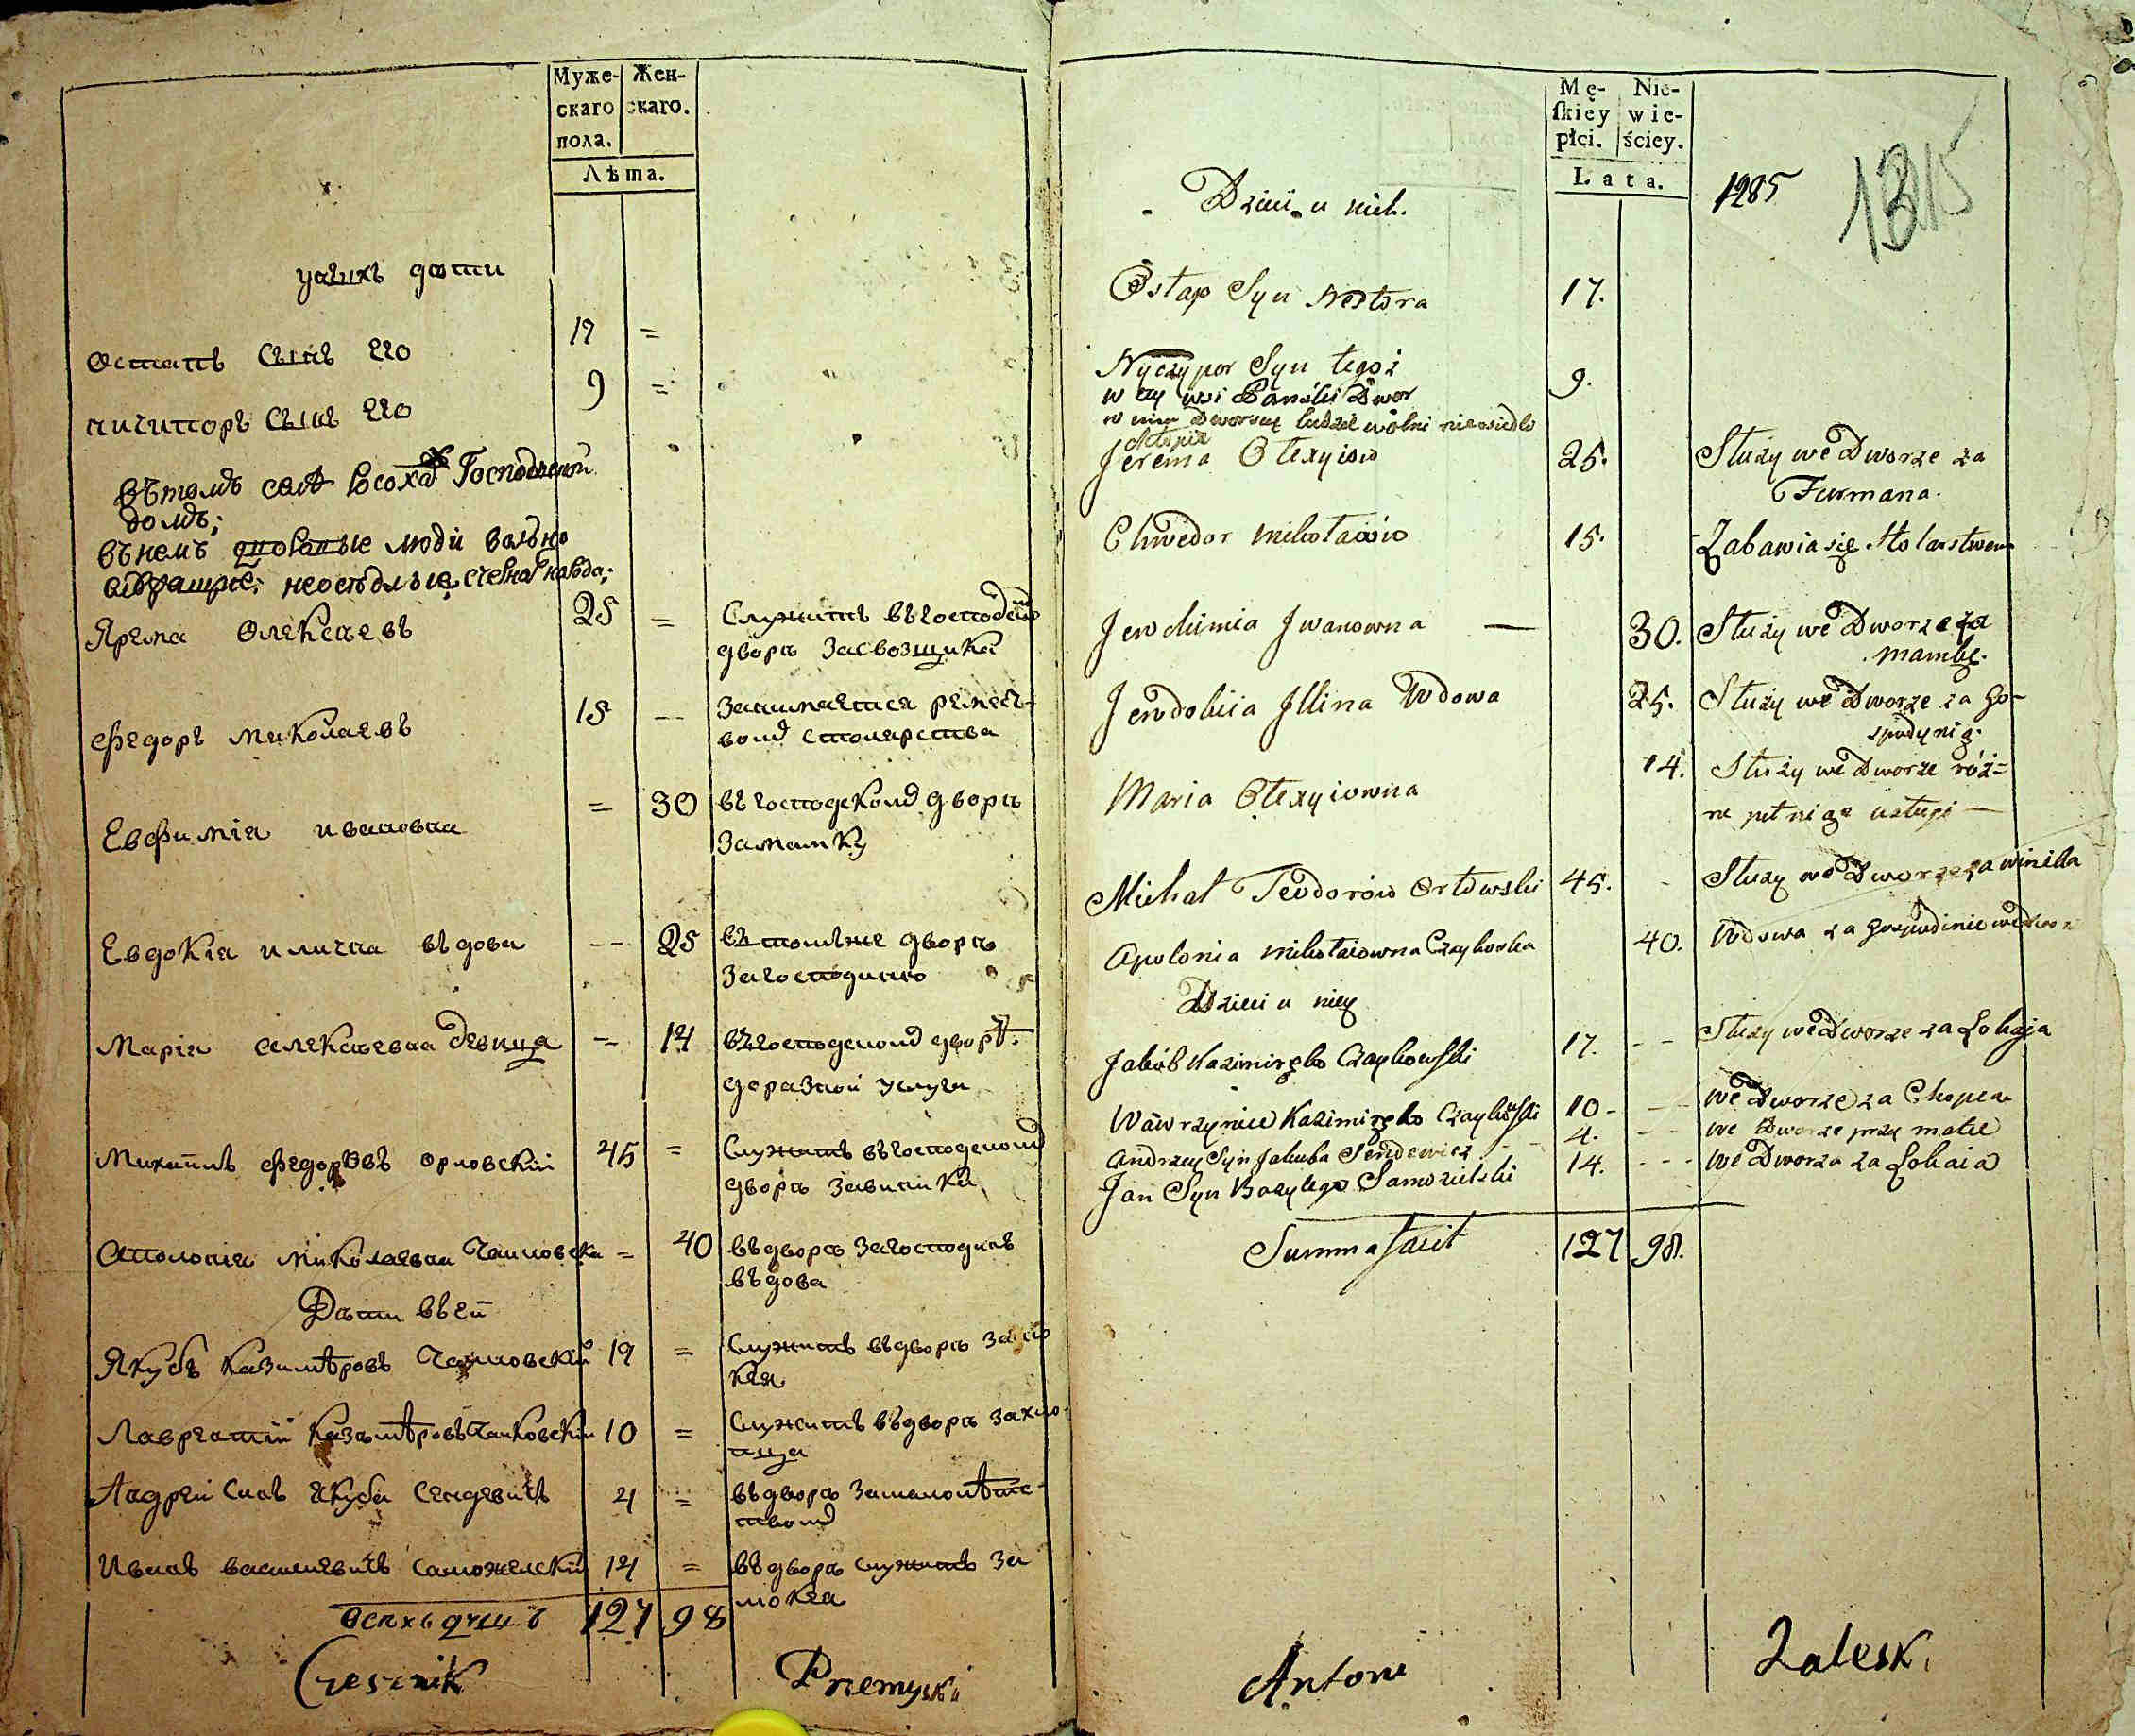 Муже-
скаго
пола.
Жен-
скаго.
Лѣта.
у нихъ дѣти
Остапъ сынъ его 17 =
ничипоръ сынъ его 9 =
Въ томъ селѣ Господской
домъ;
въ немъ дворовые люди вольно
неоседлые
Ярема Олексѣевъ 25 = Служитъ въ господскомъ
дворѣ за свозщика
Федоръ Миколаевъ 15 -- занимается ремес-
вомъ столярства
Евфимія ивановна = 30 въ господскомъ дворѣ
за мамку
Евдокія илична вдова -- 25 въ томъже дворѣ
за господиню
Марія алексѣевна девица = 14 въ господскомъ дворѣ
до разной услуги
Михаилъ федоровъ орловскій 45 = Служитъ въ господскомъ
дворѣ за винника
Аполонія Миколаевна Чайковска = 40 въ дворѣ за господинѣ
въдова
Дѣти въ ей
Якубъ Казимѣровъ Чайковскій 17 = Служитъ въ дворѣ за ло
кая
Лаврентій Казимѣровъ Чайковскій 10 = Служитъ въ дворѣ за хло-
пца
Андрей Синъ Якуба Сендевичъ 4 = въ дворѣ
Иванъ василевичъ саможелскій 14 = въ дворѣ служитъ за
локая
всѣхъ душъ 127 98
Czesznik Przemyski
Mę-
skiey
płci.
Nie-
wie-
ściey.
Lata.
1285
1315
Dzieci u nich.
Ostap Syn Nestora 17.
Nyczypor Syn tegoż 9.
w tey wsi Panski Dwor
w nim Dworscy ludzie wolni nieosiedli
Jerema Olexyiow 25. Służy we Dworze za
Furmana.
Chwedor Mikołaiow 15. Zabawia się stolarstwem
Jewchimia Jwanowna — 30. Służy we Dworze za
mamkę.
Jewdokiia Jllina Wdowa 25. Służy we Dworze za Go-
spodynią.
Maria Olexyiowna 14. Służy we Dworze róż=
ne pełniąc usługi —
Michał Teodorów Orłowski 45. - Służy we Dworze za winika
Apolonia Mikołaiowna Czaykoska 40. Wdowa za gospodinie we dwor
Dzieci u niey
Jakób Kazimirzko Czaykowski 17. -- Służy we Dworze za Lokaja
Wawrzyniec Kazimirzko Czaykowski 10 - -- we Dworze za Chopca
Andrzey Syn Jakuba Sendewicz -- 4. --- we Dworze przy matce
Jan Syn Bazylego Samozielski 14. --- we Dworze za Lokaia
Summa facit 127 98.
Antoni Zaleski